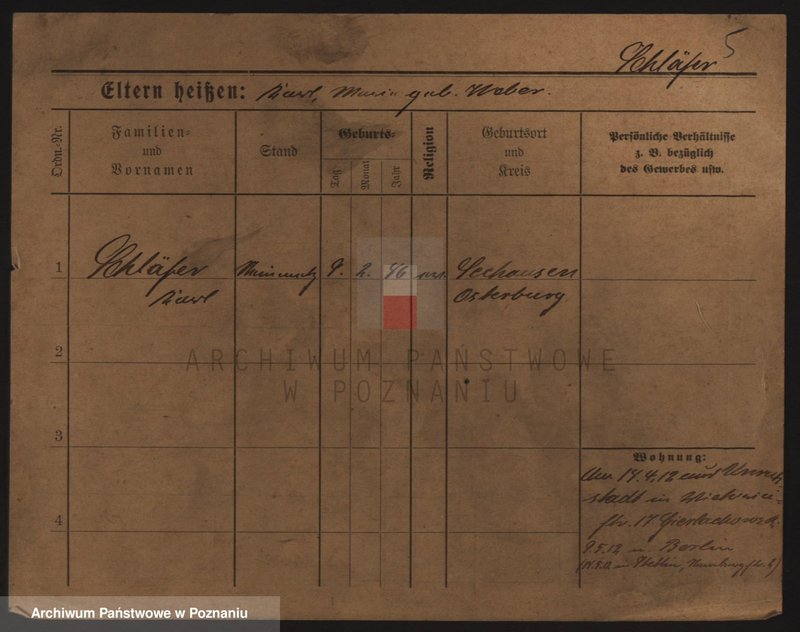 5
Schläfer
Eltern heißen: Karl, Marie geb. Weber.
Ordn.-Nr.
Familien-
und
Vornamen
Stand
Geburts-
Tag
Monat
Jahr
Religion
Geburtsort
und
Kreis
Persönliche Verhältnisse
z. B. bezüglich
des Gewerbes usw.
1
Schläfer
Karl
9. 2. 46
Seehausen
Osterburg
2
ARCHIWUM PAŃSTWOWE
W POZNANIU
3
4
Wohnung:
14.4.12 aus
stadt in
17.
9.5.12 in Berlin
in Stettin,
Archiwum Państwowe w Poznaniu